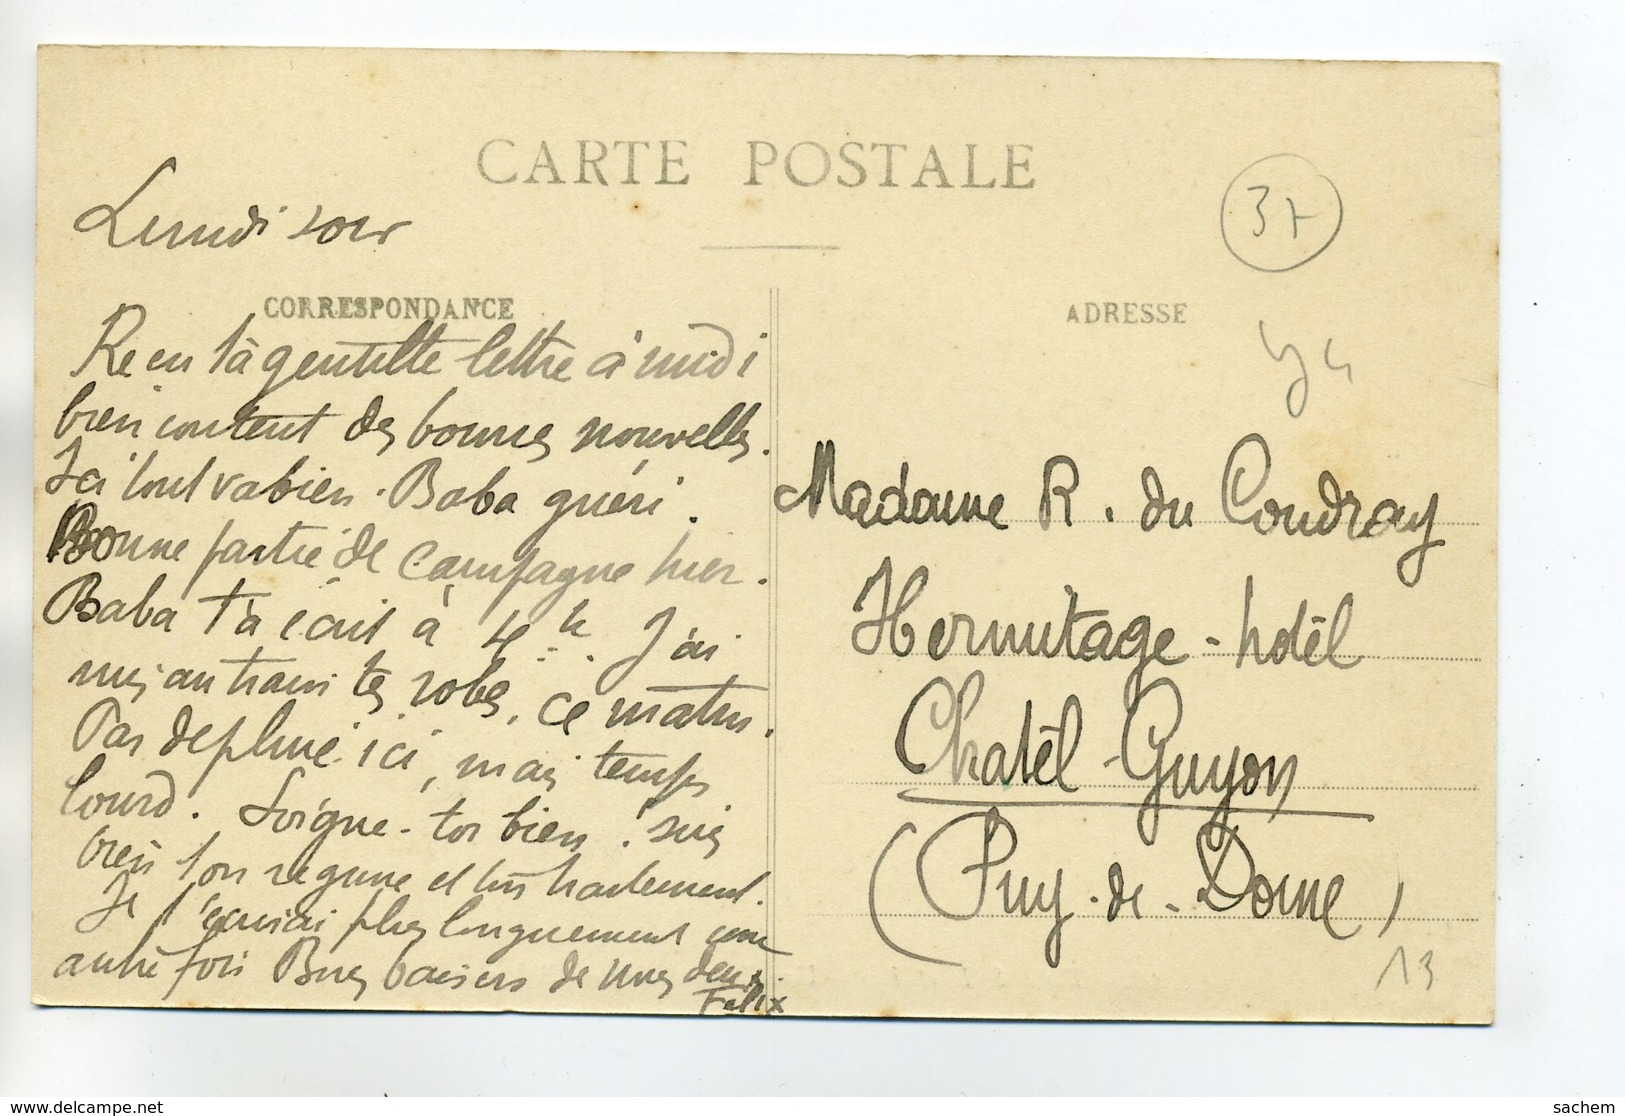 CARTE POSTALE
Lundi soir
CORRESPONDANCE
Reçu ta gentille lettre à midi
bien content des bonnes nouvelles.
Ici tout va bien. Baba guéri.
Bonne partie de campagne hier.
Baba t'a écrit à 4h. J'ai
mis au train tes robes, ce matin.
Pas de pluie ici, mais temps
lourd. Soigne-toi bien. suis
bien ton régime et ton traitement.
Je t'écrirai plus longuement une
autre fois Bons baisers de nous deux.
Félix
37
ADRESSE
Madame R. du Coudray
Hermitage-hôtel
Chatêl-Guyon
(Puy-de-Dome)
13
www.delcampe.net
sachem